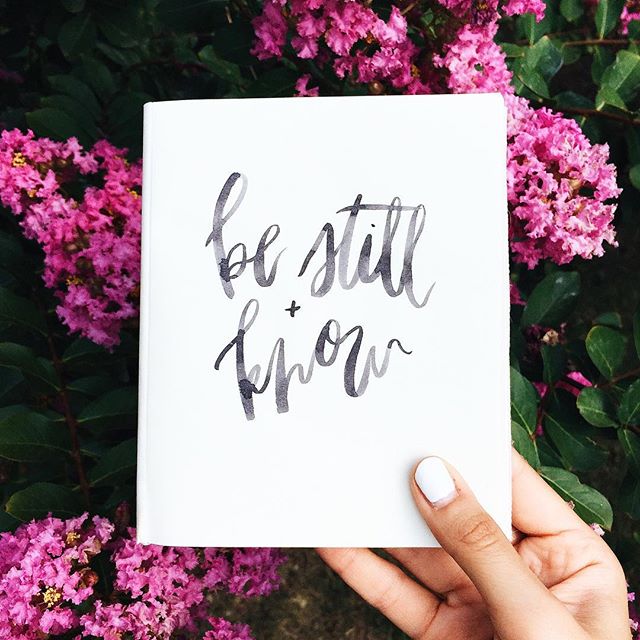 be still
+
know